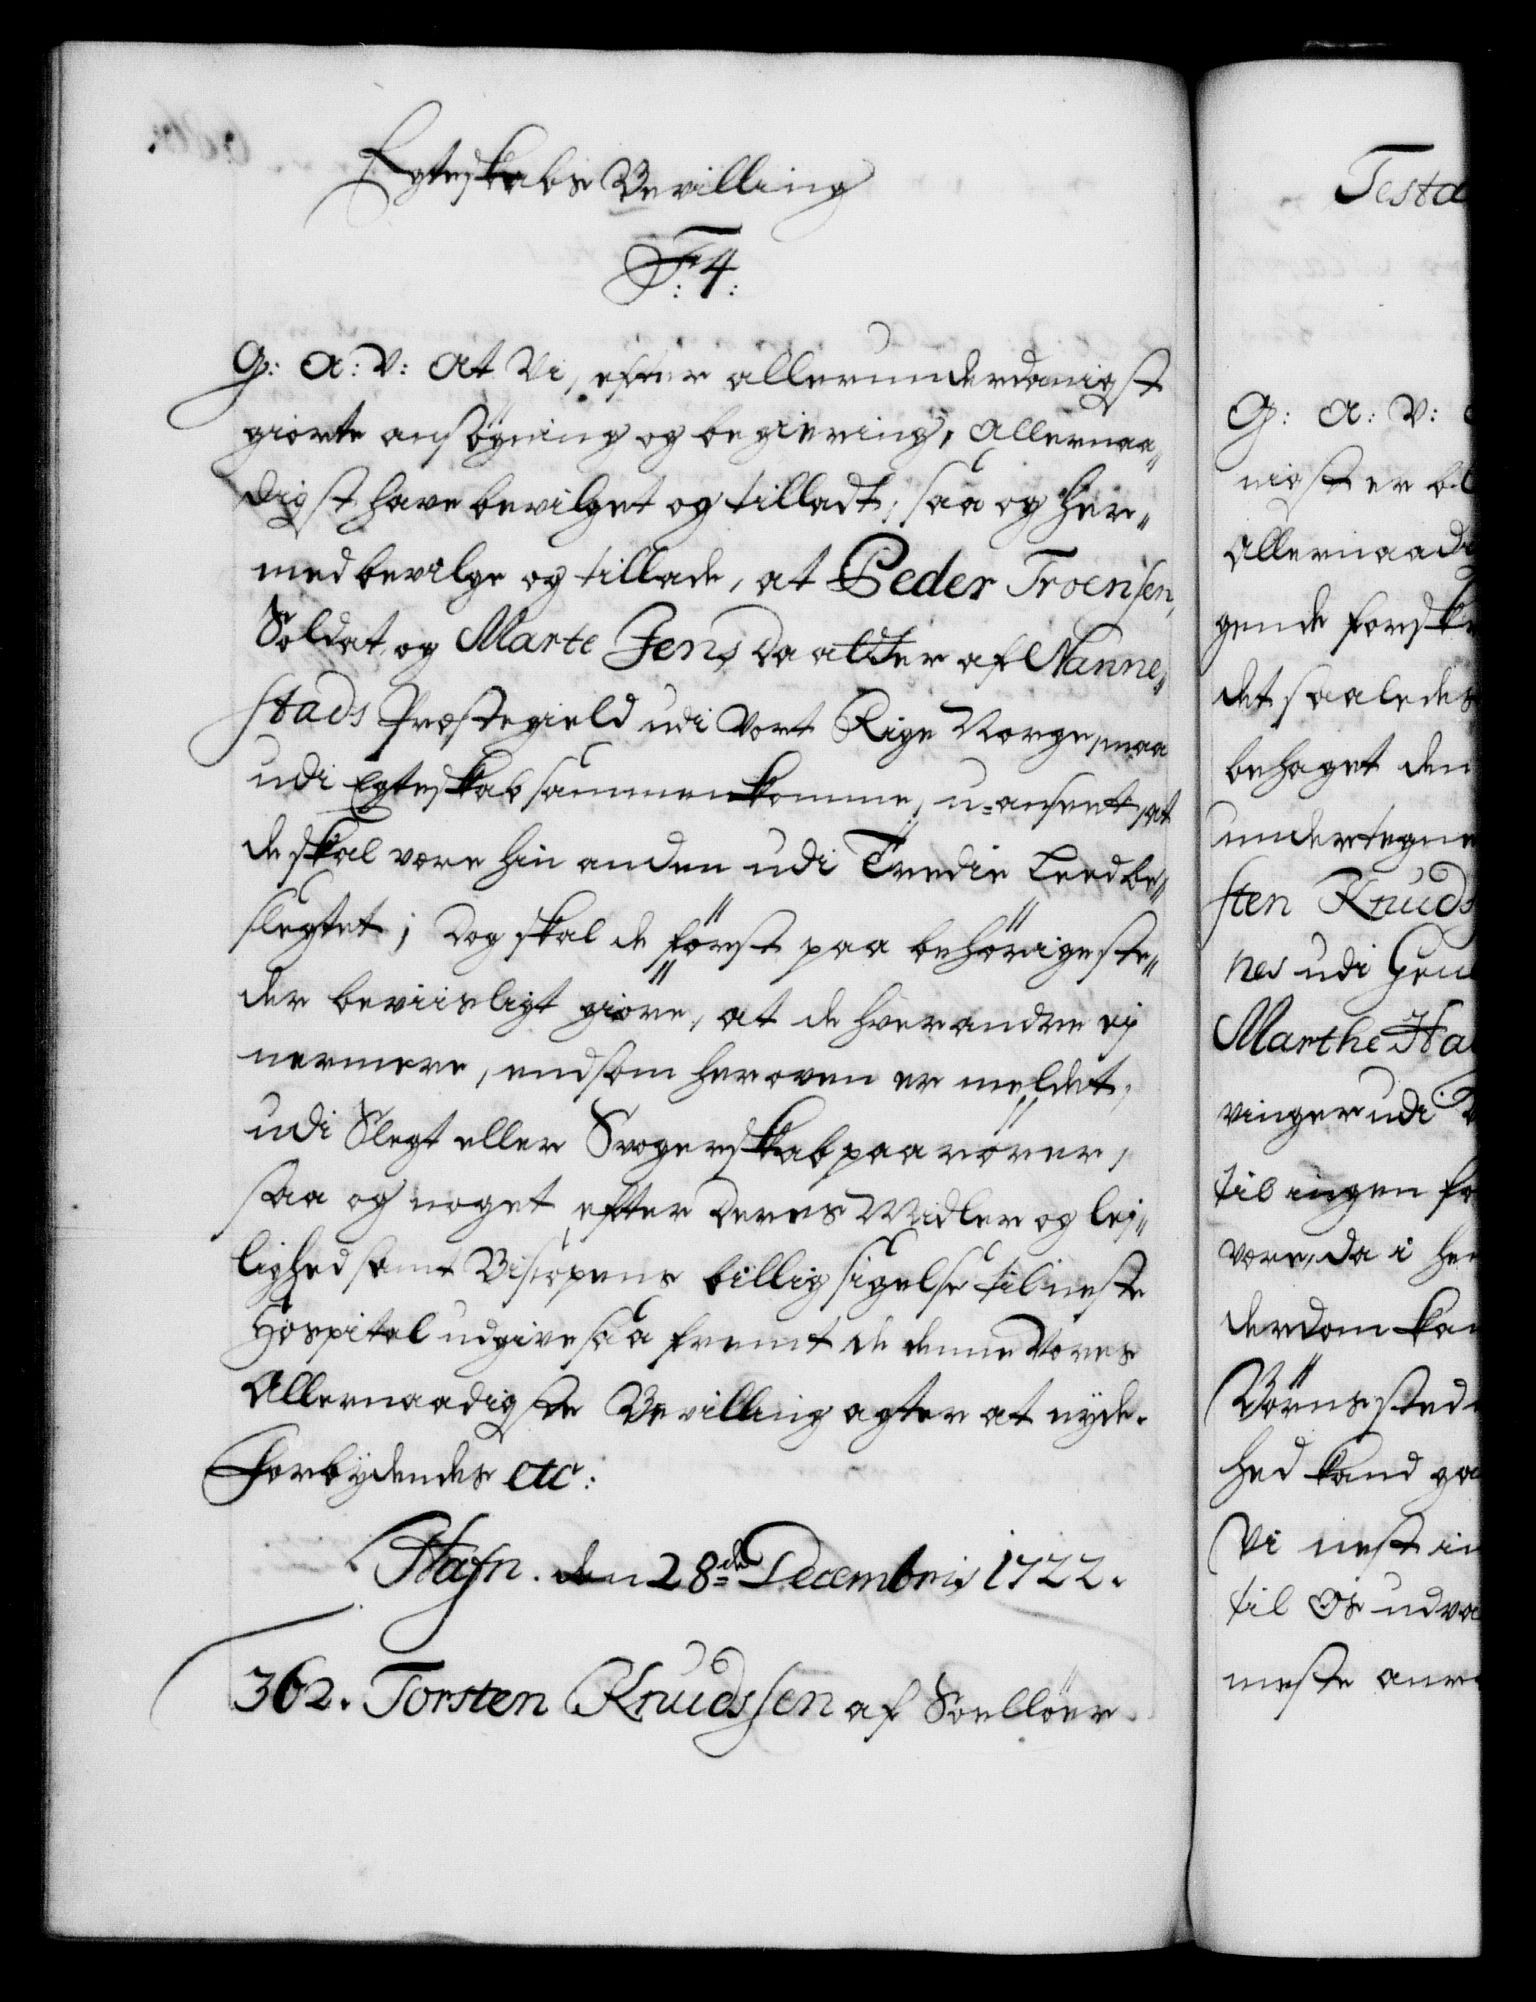 Egteskabs Bevilling
F:4:
G: A: V: At Vi, efter allerunderdanigst
giorte ansøgning og begiering, Allernaa„
digst have bevilget og tilladt, saa og her„
med bevilge og tillade, at Peder Troensen,
Soldat, og Marte Jens Daatter af Nanne„
stads Præstegield udi Vort Rige Norge, maa
udi Egteskab sammenkomme, u-anseet, at
de skal være hin anden udi Tredie Leed be„
slegtet; Dog skal de först paa behörige ste„
der beviisligt giöre, at de hverandre ej
nermere, end som her oven er meldet,
udi Slegt eller Svogerskab paarörer,
saa og noget efter deres Midler og lej„
lighed samt Biscopens billig sigelse til neste
Hospital udgive saa fremt de denne Vores
Allernaadigste Bevilling agter at nyde.
Forbydendes etc:
Hafn. den 28de Decembris 1722.
362. Torsten Knudssen af Soelløer
Testa
G: A: V:
nigst er bl
Allernaadi
gende forskr
det saaledes
behaget den
undertegne
sten Knuds
nes udi Gru
Marthe Ha
vinger udi V
til ingen fo
være, da i her
derdom kan
Börns sted
hed kand ga
Vi nest in
til Os udva
meste anre